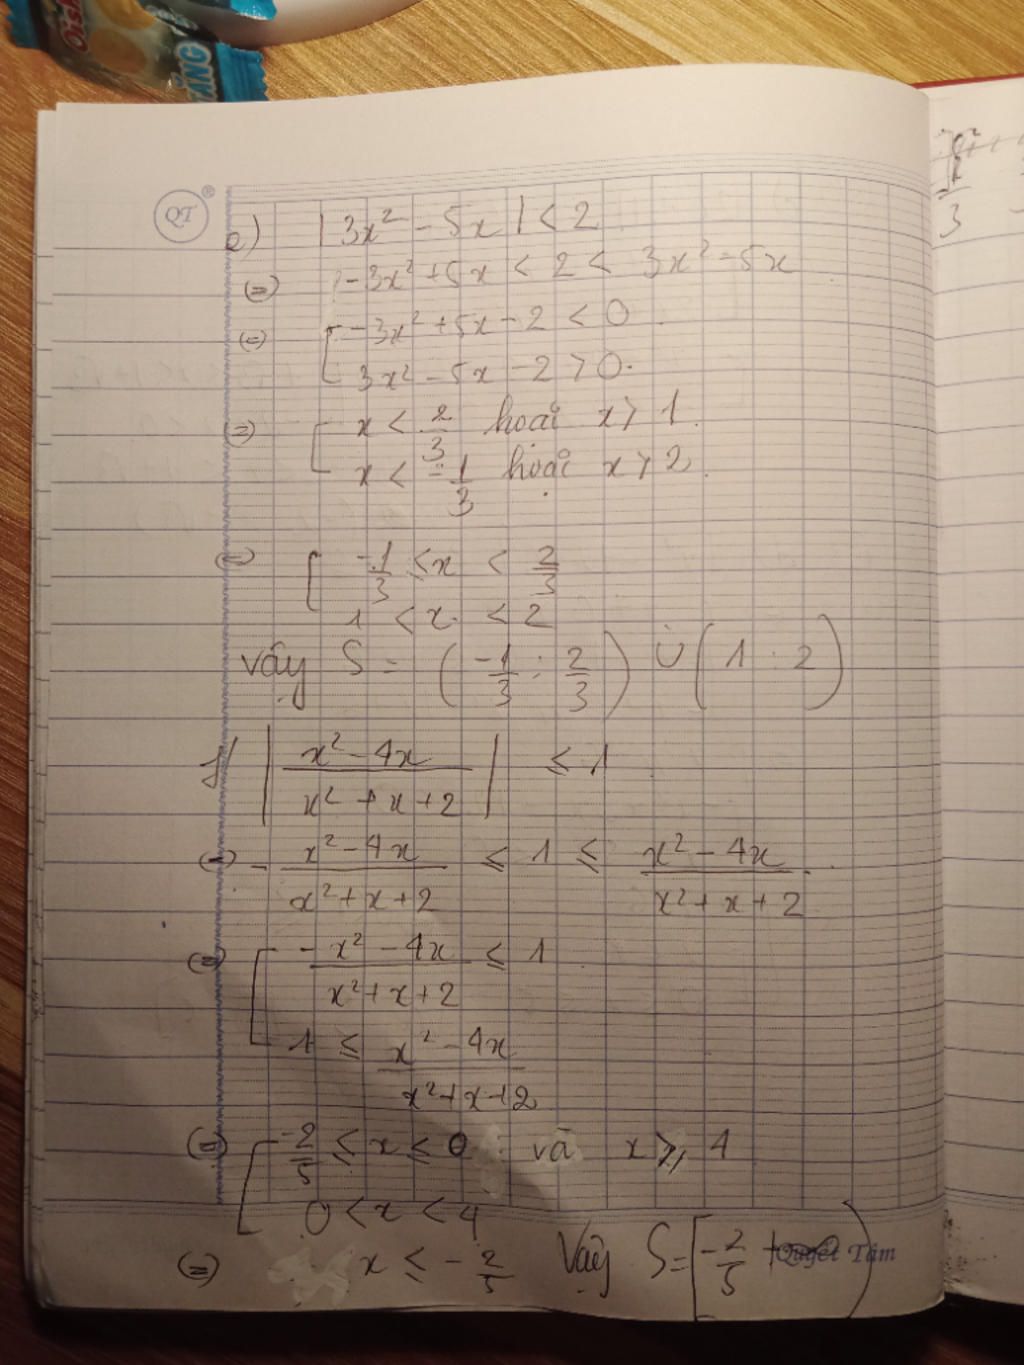 Oishi
QT
e) |3x² - 5x| < 2
(=) -3x² + 5x < 2 < 3x² - 5x
(=) [ -3x² + 5x - 2 < 0
3x² - 5x - 2 > 0.
(=) [ x < 2/3 hoặc x > 1
x < -1/3 hoặc x > 2
(=) [ -1/3 ≤ x < 2/3
1 < x < 2
Vậy S = (-1/3 ; 2/3) ∪ (1 ; 2)
| (x² - 4x)/(x² + x + 2) | ≤ 1
(=) - (x² - 4x)/(x² + x + 2) ≤ 1 ≤ (x² - 4x)/(x² + x + 2)
(=) [ - (x² - 4x)/(x² + x + 2) ≤ 1
1 ≤ (x² - 4x)/(x² + x + 2)
(=) [ -2/5 ≤ x ≤ 0 và x ≥ 1
0 < x < 4
(=) x ≤ -2/5 Vậy S = [-2/5 +∞)
Quyết Tâm